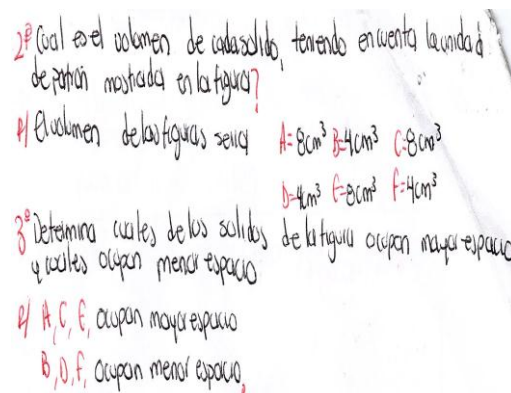 2º Cual es el volumen de cada solido, teniendo en cuenta la unidad
de patrón mostrada en la figura?
R/ El volumen de las figuras seria A=8cm³ B=4cm³ C=8cm³
D=4cm³ E=8cm³ F=4cm³
3º Determina cuales de los solidos de la figura ocupan mayor espacio
y cuales ocupan menor espacio
R/ A, C, E, ocupan mayor espacio
B, D, F, ocupan menor espacio,